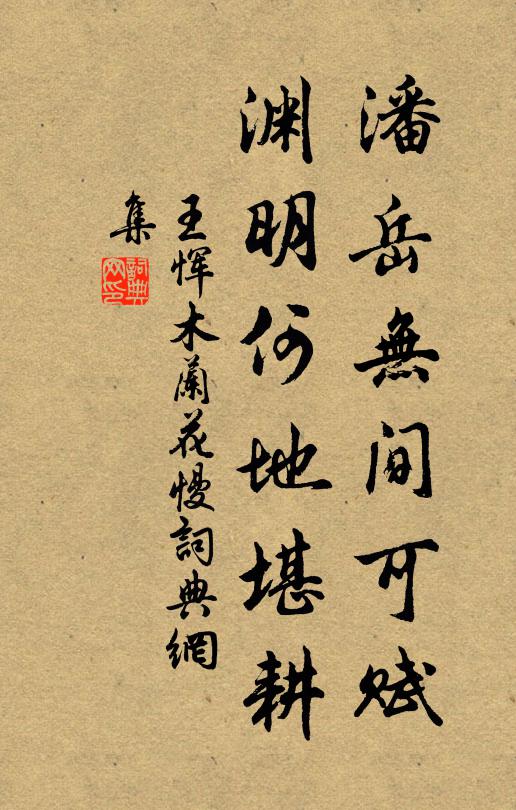 潘岳無間可賦
淵明何地堪耕
王惲木蘭花慢詞典網
集
詞典
网印